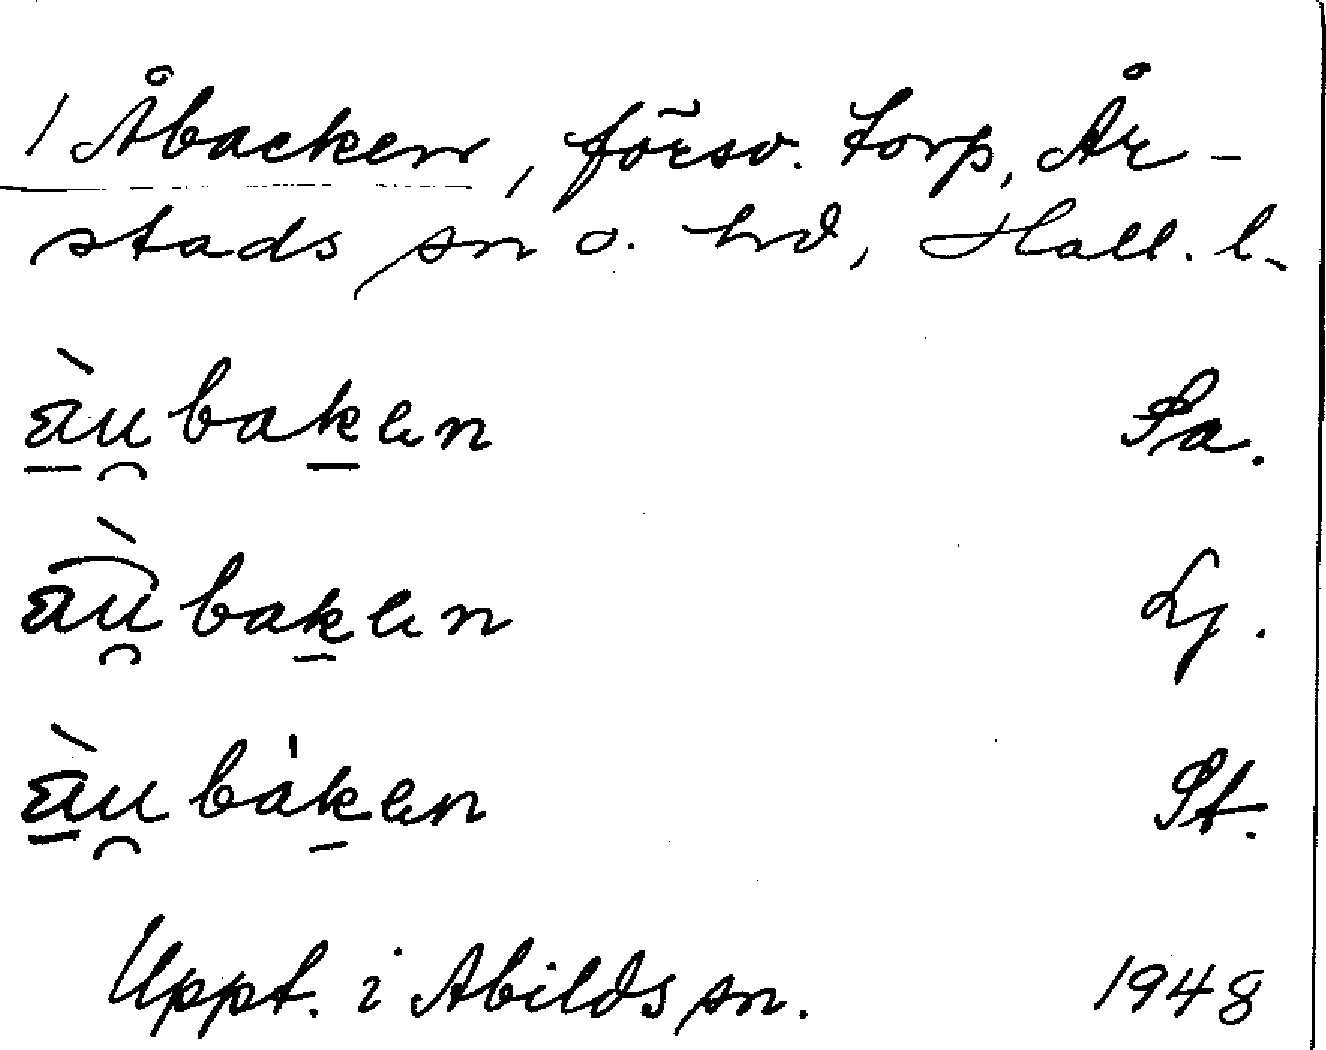 1 Åbacken, försv. torp, År-
stads sn o. hd, Hall. l.
àu̯baken Sa.
àu̯baken Lj.
àu̯bàken St.
Uppt. i Abilds sn. 1948